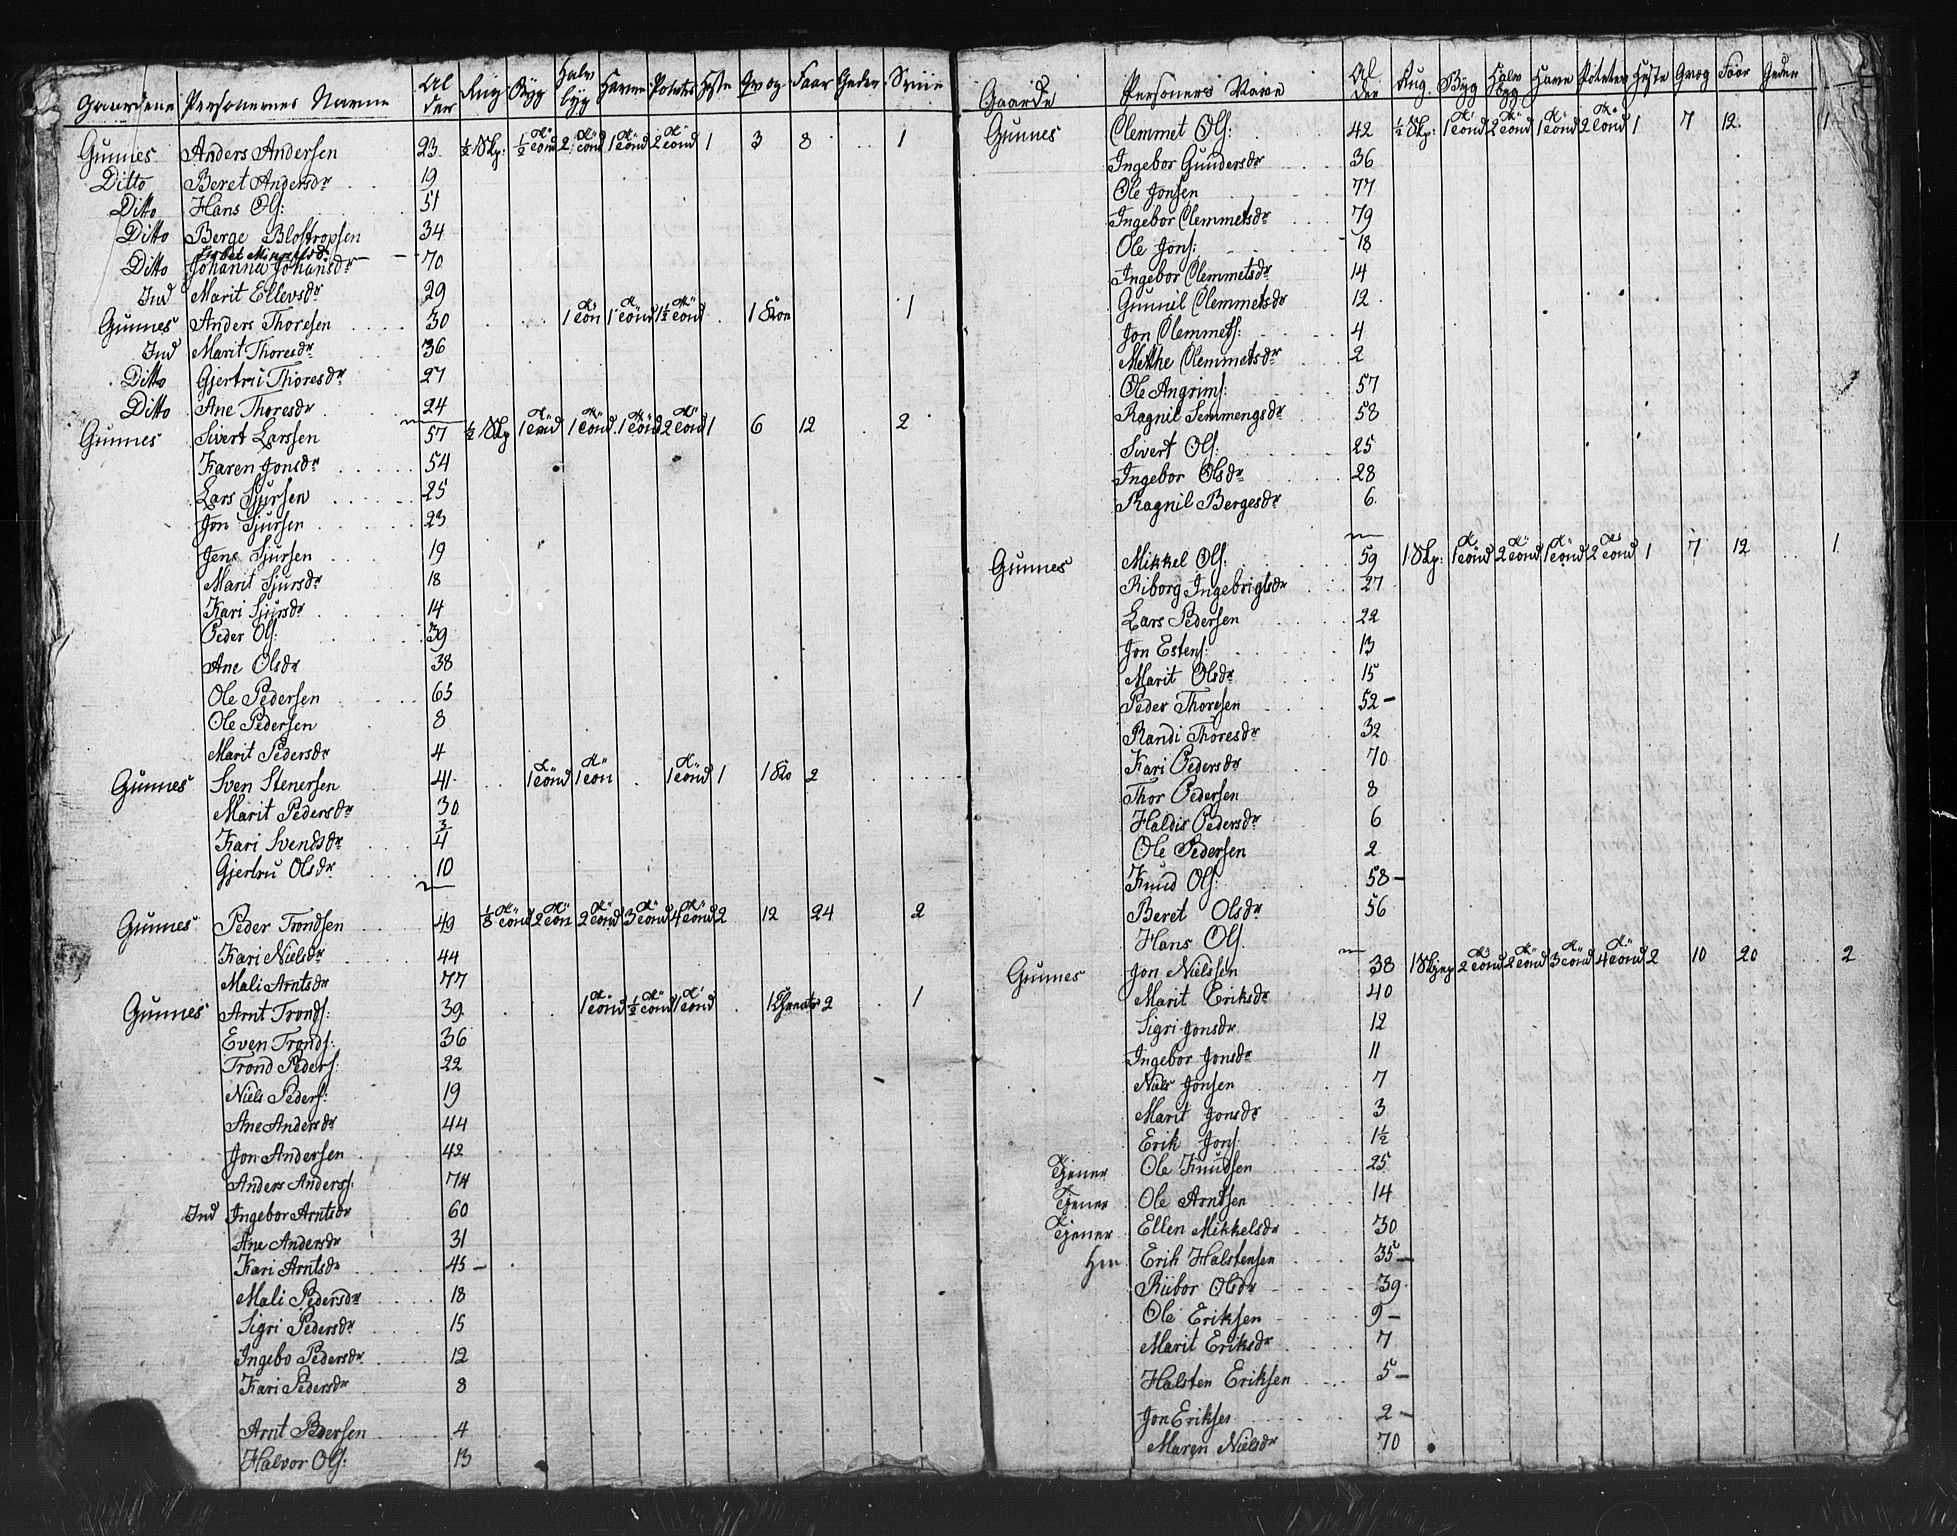 Gaardene Personernes Navne Al der Rug Byg Halv byg Havre Potetes Heste Qvog Faar Geder Sviin
Gunnes Anders Andersen 23 ½ Skp: ½ Tönd 2 Tönd 1 Tönd 2 Tönd 1 3 8 1
Ditto Beret Andersdr 19
Ditto Hans Ols: 51
Ditto Berge Blostropsen 34
Ditto Johanna Johansdr 70
Ind Marit Ellevsdr 29
Gunnes Anders Thoresen 30 1 Tön 1 Tönd 1½ Tönd 1 Koe 1
Ind Marit Thoresdr 36
Ditto Gjertru Thoresdr 27
Ditto Ane Thoresdr 24
Gunnes Sivert Larssen 57 ½ Skp 1 Tönd 1 Tönd 1 Tönd 2 Tönd 1 6 12 2
Karen Jonsdr 54
Lars Sjursen 25
Jon Sjursen 23
Jens Sjursen 19
Marit Sjursdr 18
Kari Sjursdr 14
Peder Ols: 39
Ane Olsdr 38
Ole Pedersen 63
Ole Pedersen 8
Marit Pedersdr 4
Gunnes Sven Stenersen 41 1 Tönd 1 Tön 1 Tönd 1 1 Ko 2
Marit Pedersdr 30
Kari Svendsdr ¾
Gjertru Olsdr 10
Gunnes Peder Trondsen 49 ⅛ Tönd 2 Tön 2 Tönd 3 Tönd 4 Tönd 2 12 24 2
Kari Nielsdr 44
Mali Arntsdr 77
Gunnes Arnt Tronds: 39 1 Tönd ½ Tönd 1 Tönd 1 2 1
Even Tronds: 36
Trond Peders: 22
Niels Peders: 19
Ane Andersdr 44
Jon Andersen 42
Anders Anders: 74
Ind Ingebor Arntsdr 60
Ane Andersdr 31
Kari Arntsdr 45 –
Mali Pedersdr 18
Sigri Pedersdr 15
Ingebo Pedersdr 12
Kari Pedersdr 8
Arnt Pdersen 4
Halvor Ols: 13
Gaarde Personers Navne Al der Rug Byg Halv byg Havre Poteter Heste Qvog Faar Geder
Gunnes Clemmet Ols: 42 ½ Skp: 1 Tönd 2 Tönd 1 Tönd 2 Tönd 1 7 12 1
Ingebor Gundersdr 36
Ole Jonsen 77
Ingebor Clemmetsdr 79
Ole Jons: 18
Ingebor Clemmetsdr 14
Gunnil Clemmetsdr 12
Jon Clemmets: 4
Methe Clemmetsdr 2
Ole Angrims: 57
Ragnil Semmengsdr 58
Sivert Ols: 25
Ingebor Olsdr 28
Ragnil Bergesdr 6
Gunnes Mikkel Ols: 59 1 Skp: 1 Tönd 2 Tönd 1 Tönd 2 Tönd 1 7 12 1
Riborg Ingebrigtsdr 27
Lars Pedersen 22
Jon Estens: 13
Marit Olsdr 15
Peder Thoresen 52 –
Randi Thoresdr 32
Kari Pedersdr 70
Thor Pedersen 8
Haldis Pedersdr 6
Ole Pedersen 2
Knud Ols: 58 –
Beret Olsdr 56
Hans Ols.
Gunnes Jon Nielssen 38 1 Skjep 2 Tönd 2 Tönd 3 Tönd 4 Tönd 2 10 20 2
Marit Eriksdr 40
Sigri Jonsdr 12
Ingebor Jonsdr 11
Niels Jonsen 7
Marit Jonsdr 3
Erik Jons: 1½
Tjener Ole Knudsen 25
Tjener Ole Arndsen 14
Tjener Ellen Mikkelsdr 30
Erik Halstensen 35 –
Riibor Olsdr 39
Ole Eriksen 9 –
Marit Eriksdr 7
Halsten Eriksen 5 –
Jon Eriksen 2 –
Maren Nielsdr 70